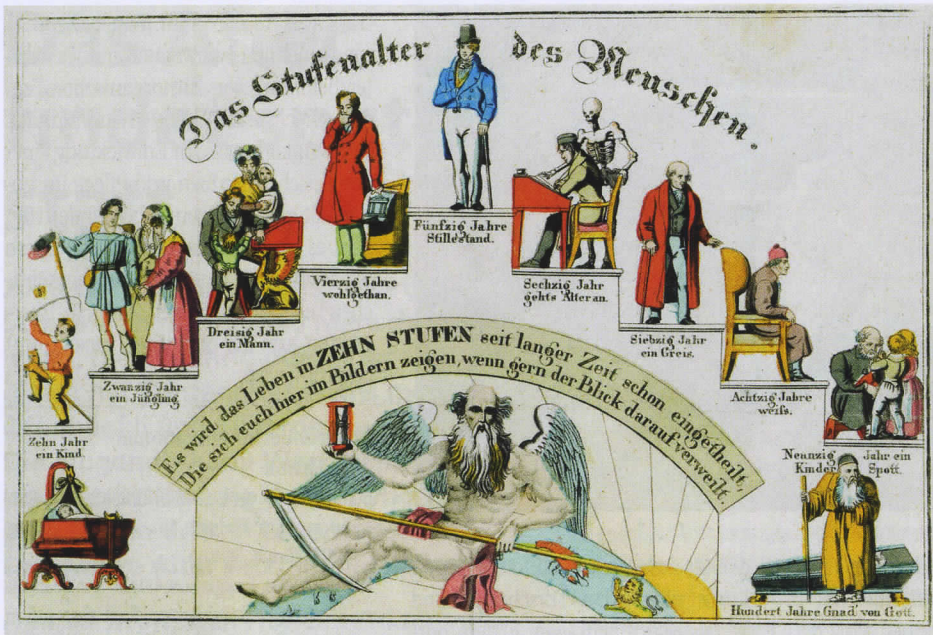 Das Stufenalter des Menschen.
Zehn Jahr
ein Kind.
Zwanzig Jahr
ein Jüngling
Dreisig Jahr
ein Mann.
Vierzig Jahre
wohlgethan.
Fünfzig Jahre
Stillestand.
Sechzig Jahr
gehts Älter an.
Siebzig Jahr
ein Greis.
Achtzig Jahre
weiss.
Neunzig Jahr ein
Kinder Spott.
Hundert Jahre Gnad' von Gott.
Es wird das Leben in ZEHN STUFEN seit langer Zeit schon eingetheilt,
Die sich euch hier im Bildern zeigen, wenn gern der Blick darauf verweilt.